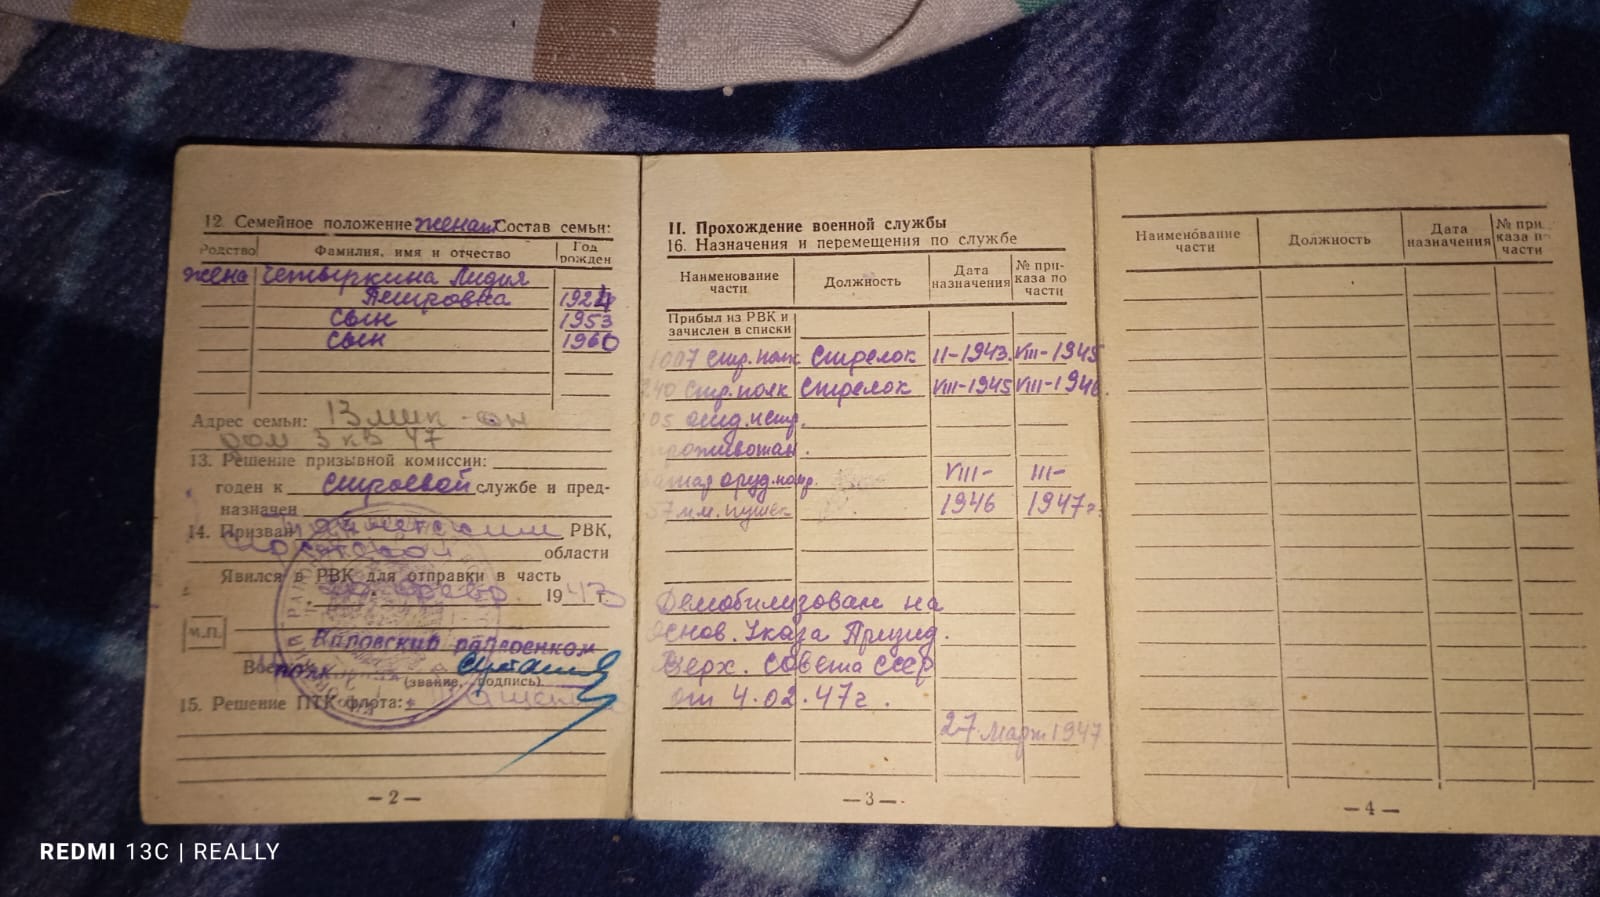 12. Семейное положение женат Состав семьи:
Родство Фамилия, имя и отчество Год рожден
жена Четыркина Лидия
Петровна 1924
сын 1953
сын 1960
Адрес семьи: 13 мик-он
дом 3 кв 47
13. Решение призывной комиссии:
годен к строевой службе и пред-
назначен
14. Призван РВК,
области
Явился в РВК для отправки в часть
19 43 г.
М.П.
Кировский райвоенком
(звание, подпись)
15. Решение ПТК флота:
— 2 —
II. Прохождение военной службы
16. Назначения и перемещения по службе
Наименование части Должность Дата назначения № при-каза по части
Прибыл из РВК и
зачислен в списки
1007 стр. полк Стрелок II-1943. VIII-1945
240 стр. полк Стрелок VIII-1945 VIII-1946.
05 отд. истр.
противотан.
оруд. VIII- III-
57 м.м. пушек 1946 1947г.
Демобилизован на
основ. Указа Презид.
Верх. Совета СССР
от 4.02.47г.
27 Март 1947
— 3 —
Наименование части Должность Дата назначения № при-каза по части
— 4 —
REDMI 13C | REALLY